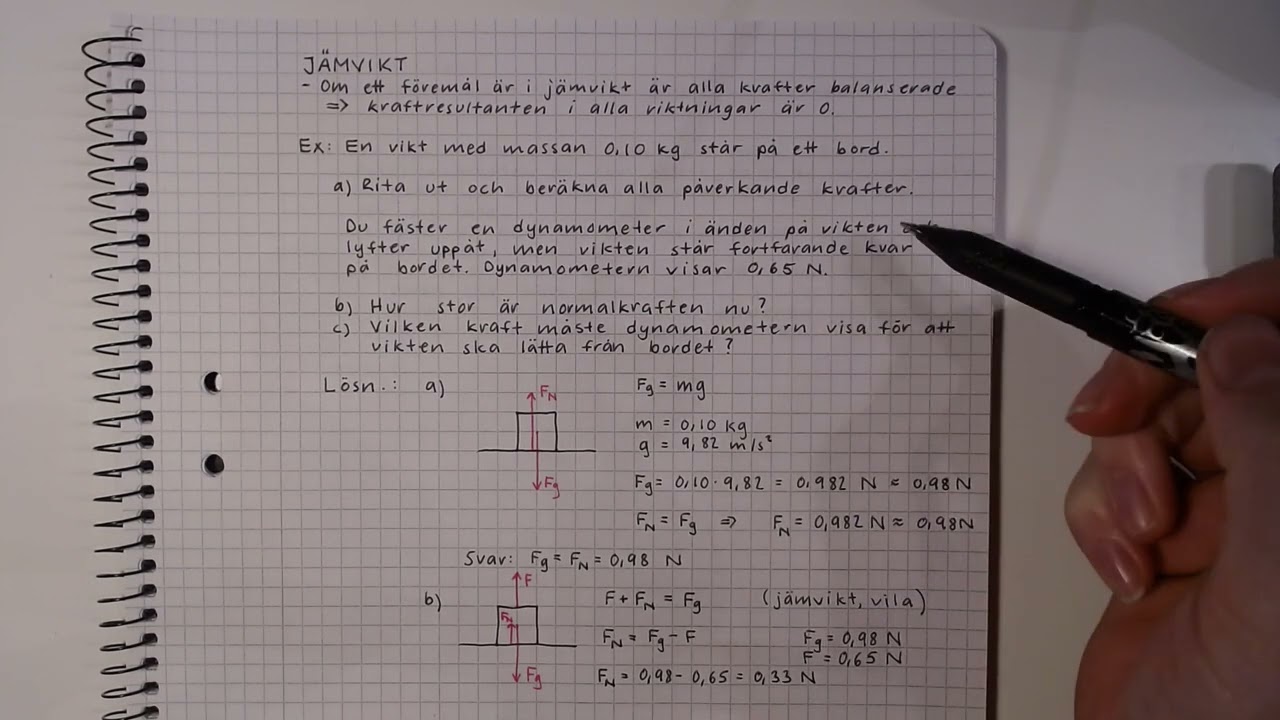 JÄMVIKT
- Om ett föremål är i jämvikt är alla krafter balanserade
=> kraftresultanten i alla riktningar är 0.
Ex: En vikt med massan 0,10 kg står på ett bord.
a) Rita ut och beräkna alla påverkande krafter.
Du fäster en dynamometer i änden på vikten
lyfter uppåt, men vikten står fortfarande kvar
på bordet. Dynamometern visar 0,65 N.
b) Hur stor är normalkraften nu?
c) Vilken kraft måste dynamometern visa för att
vikten ska lätta från bordet?
Lösn.: a)
F_N
Fg
Fg = mg
m = 0,10 kg
g = 9,82 m/s²
Fg = 0,10 · 9,82 = 0,982 N ≈ 0,98 N
F_N = Fg => F_N = 0,982 N ≈ 0,98 N
Svar: Fg = F_N = 0,98 N
b)
F
F_N
Fg
F + F_N = Fg (jämvikt, vila)
F_N = Fg - F
Fg = 0,98 N
F = 0,65 N
F_N = 0,98 - 0,65 = 0,33 N